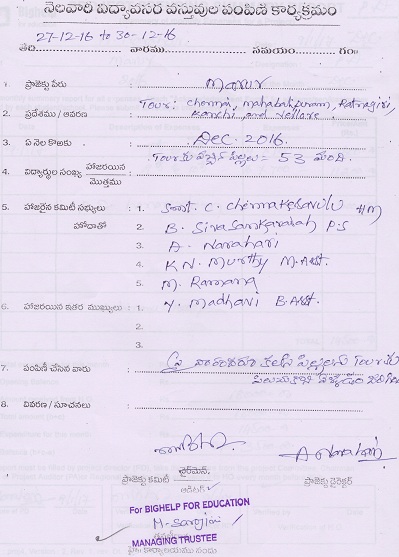 నెలవారి విద్యావసర వస్తువుల పంపిణీ కార్యక్రమం
27-12-16 to 30-12-16
తేది................. వారము................. సమయం................. గం॥
1. ప్రాజెక్టు పేరు : Marur
Tour: Chennai, mahabalipuram, Ratnagiri,
2. ప్రదేశము / ఆవరణ : Kanchi and Nellore.
3. ఏ నెల కొఱకు : Dec. 2016.
Tour కు వచ్చిన పిల్లలు = 53 మంది.
4. విద్యార్థుల సంఖ్య హాజరయిన మొత్తము :
5. హాజరైన కమిటీ సభ్యులు : 1. C. Chennakesavulu HM
హోదాతో 2. B. Sivasankaraiah P.S
3. A. Narahari
4. K.N. Murthy M.Asst.
5. M. Ramana
6. హాజరయిన ఇతర ముఖ్యులు : 1. Y. Madhavi B.Asst.
2.
3.
7. పంపిణీ చేసిన వారు : పిల్లలను Tour కు
8. వివరణ / సూచనలు :
చైర్‌మెన్.
ప్రాజెక్టు కమిటీ ఆడిటర్
A Narahari
ప్రాజెక్టు డైరెక్టర్
For BIGHELP FOR EDUCATION
M. Sarojini
MANAGING TRUSTEE